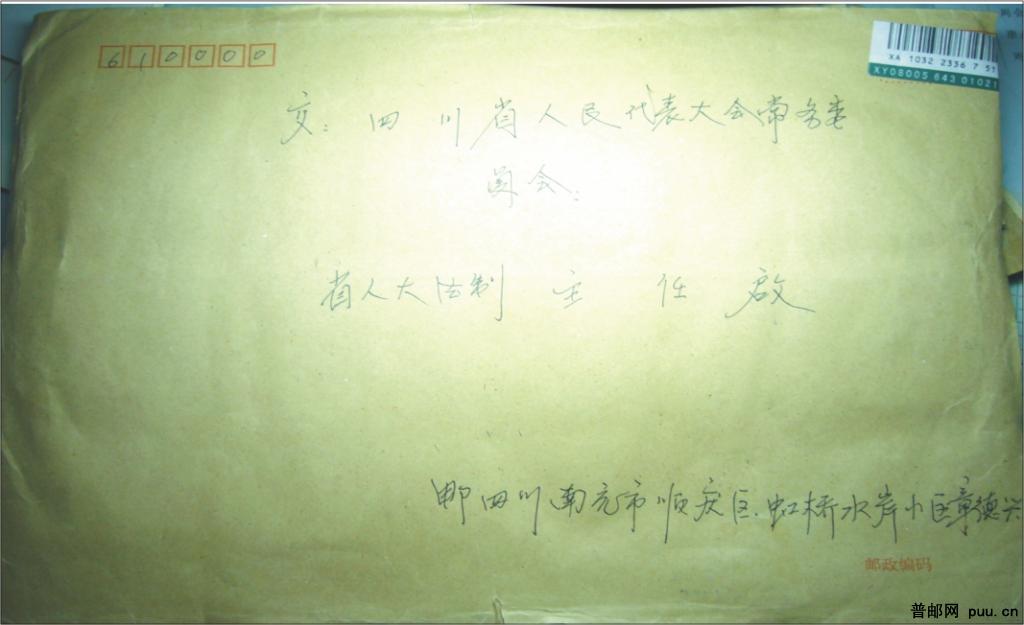 610000
XA 1032 2336 7 51
XY08005 643 01021
交：四川省人民代表大会常务委
员会：
省人大法制主任启
邮四川南充市顺庆区虹桥水岸小区章德兴
邮政编码
普邮网 puu.cn